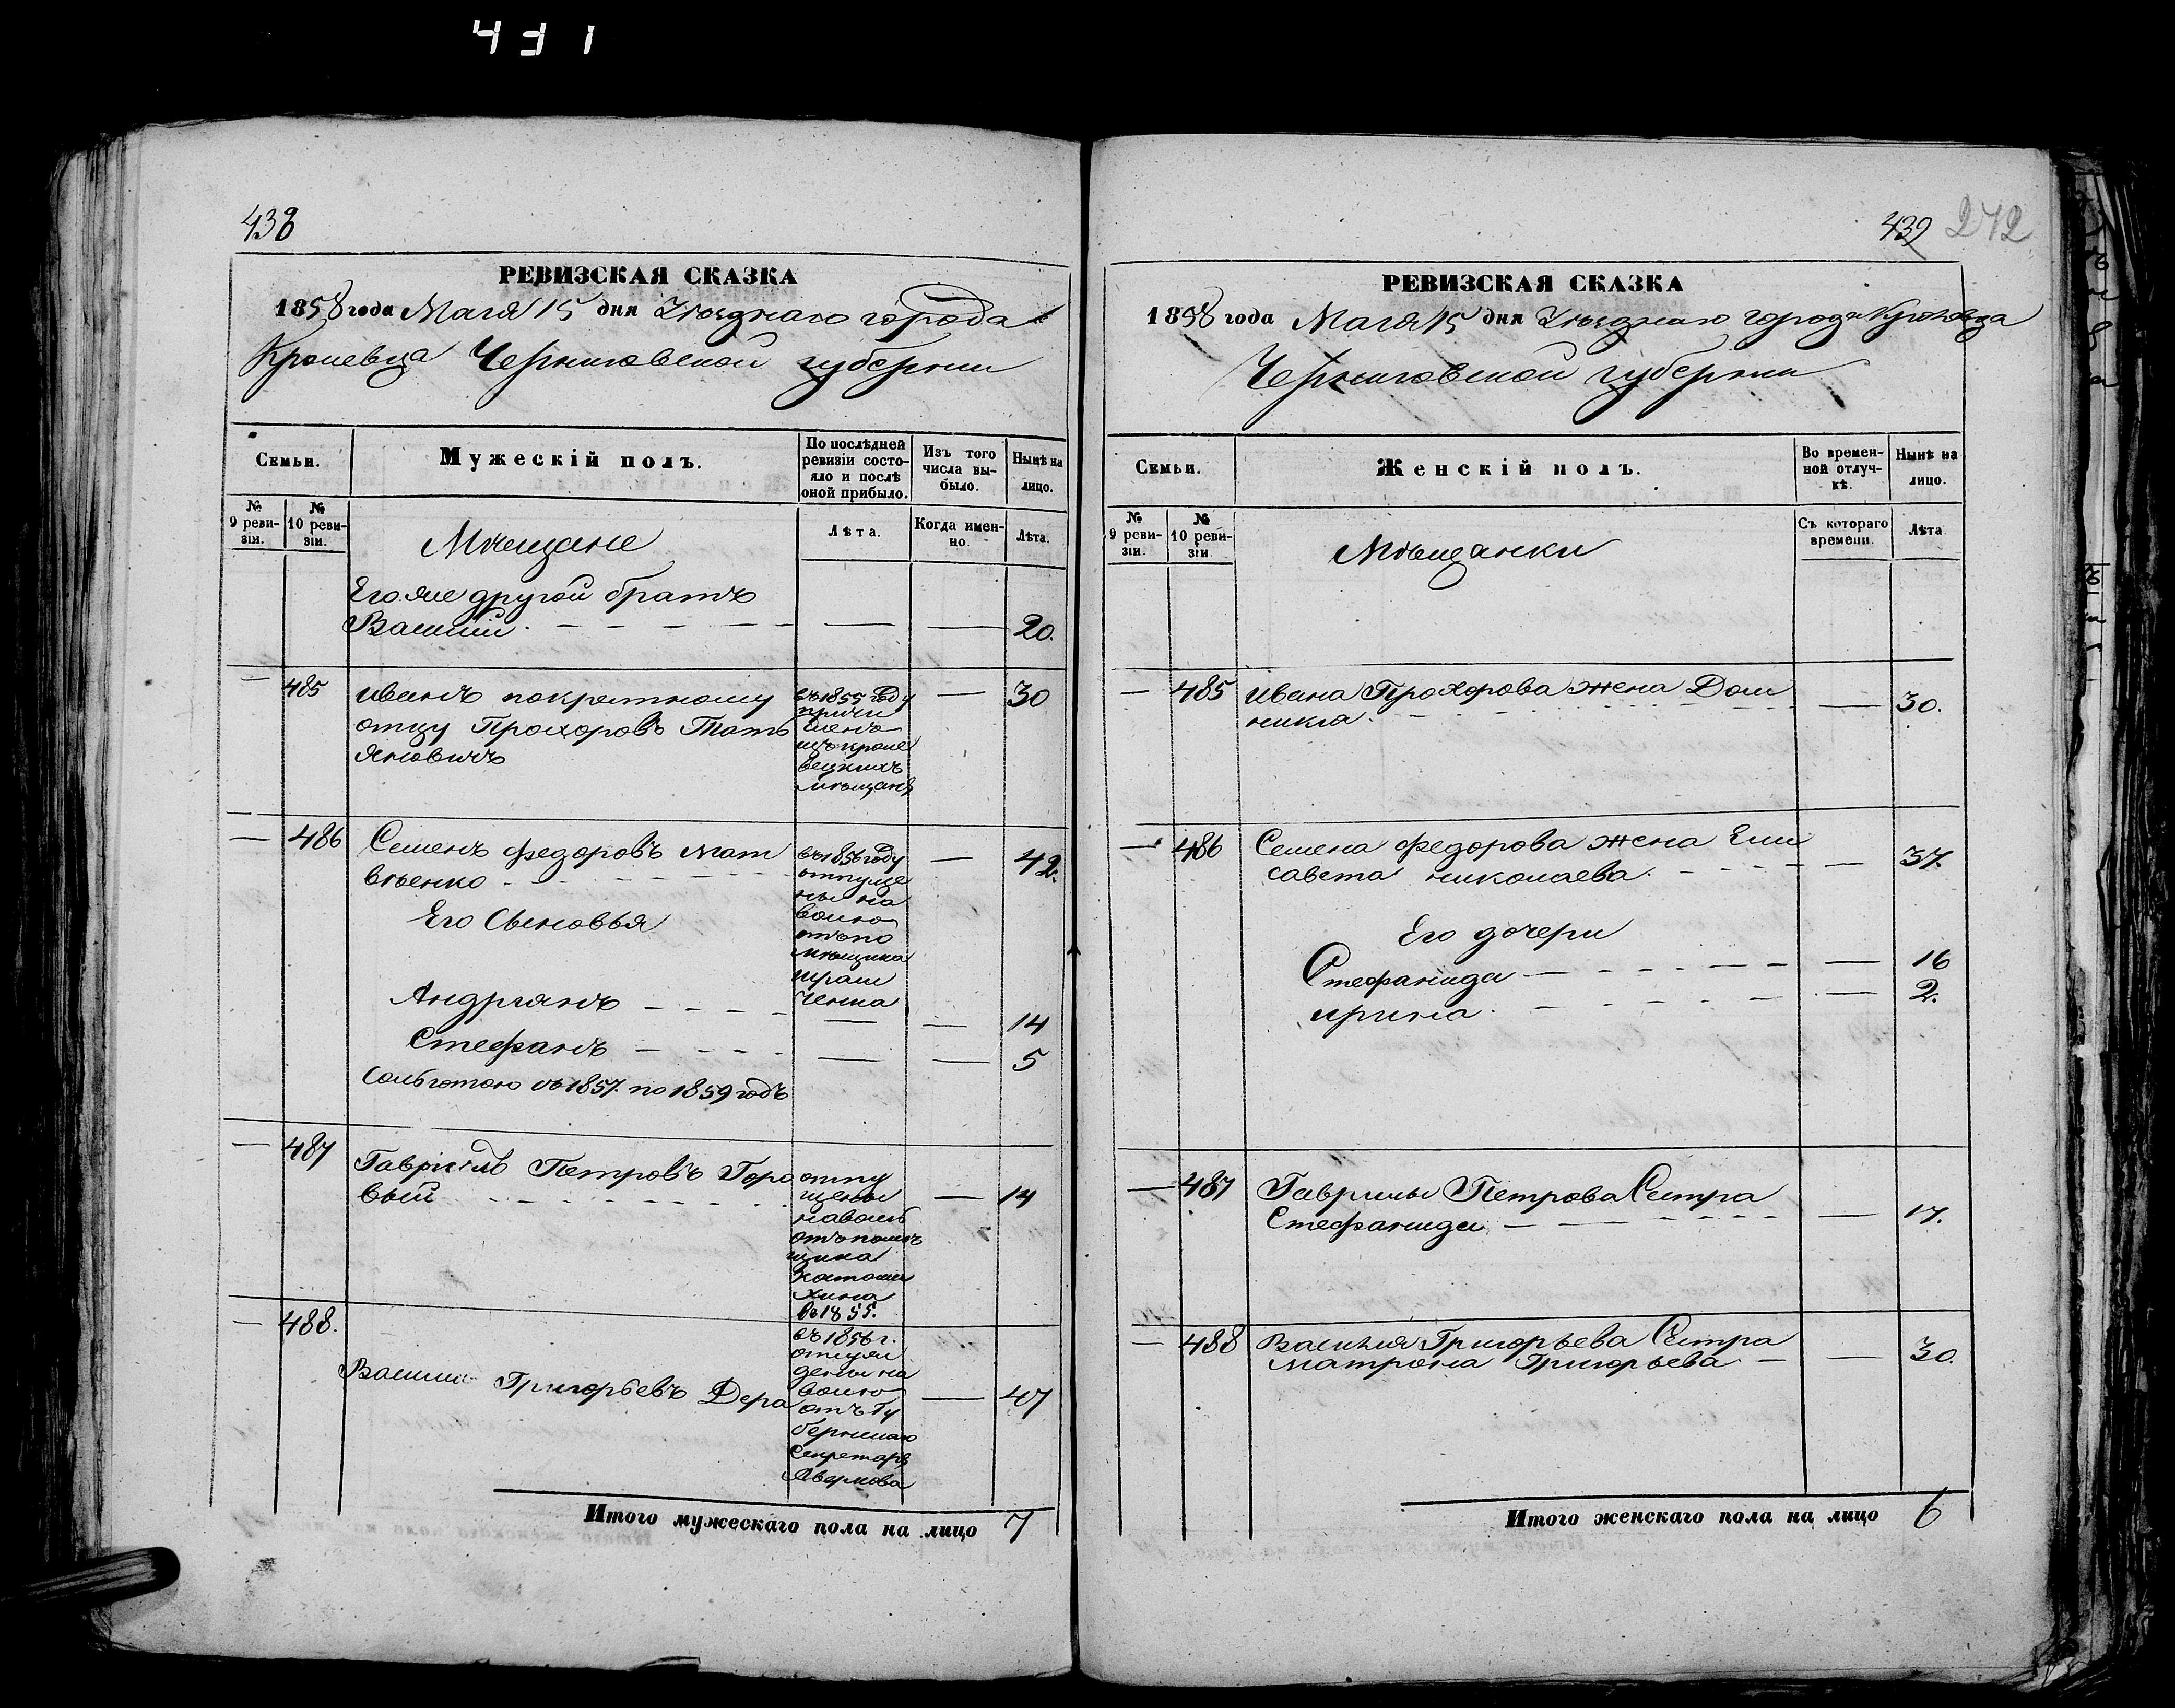 431
438
РЕВИЗСКАЯ СКАЗКА
1858 года Маія 15 дня Уѣзднаго города
Кролевца Черниговской губерніи
Семьи.
Мужескій полъ.
По послѣдней
ревизіи состо-
яло и послѣ
оной прибыло.
Изъ того
числа вы-
было.
Нынѣ на
лицо.
№
9 реви-
зіи.
№
10 реви-
зіи.
Мѣщане
Лѣта.
Когда имен-
но.
Лѣта.
Его же другой братъ
Василій
20.
485
Иванъ по крестному
отцу Прохоровъ
въ 1855 году
причи
сленъ
кроле
вецкихъ
мѣщанъ
30
486
Семенъ Федоровъ Мат
вѣенко
въ 1856 году
отпуще
ны на
волю
отъ по
мѣщика
42.
Его Сыновья
Андріянъ
14
Стефанъ
5
Сольготою съ 1857. по 1859 годъ
487
Гавріилъ Петровъ Горо
вый
отпу
щены
на волю
отъ помѣ
щика
въ 1855.
14
488.
Василій Григорьевъ Дера
въ 1856 г.
на
волю
отъ Гу
бернскаго
Секретаря
47
Итого мужескаго пола на лицо 7
439 242
РЕВИЗСКАЯ СКАЗКА
1858 года Маія 15 дня Уѣзднаго города Кролевца
Черниговской губерніи
Семьи.
Женскій полъ.
Во времен-
ной отлуч-
кѣ.
Нынѣ на
лицо.
№
9 реви-
зіи.
№
10 реви-
зіи
Мѣщанки
Съ котораго
времени.
Лѣта
485
Ивана Прохорова жена Дом
никія
30.
486
Семена Федорова жена Ели
савета Николаева
37.
Его дочери
Стефанида
16
Ирина
2.
487
Гаврилы Петрова Сестра
Стефанида
17.
488
Василія Григорьева Сестра
Матрона Григорьева
30.
Итого женскаго пола на лицо 6